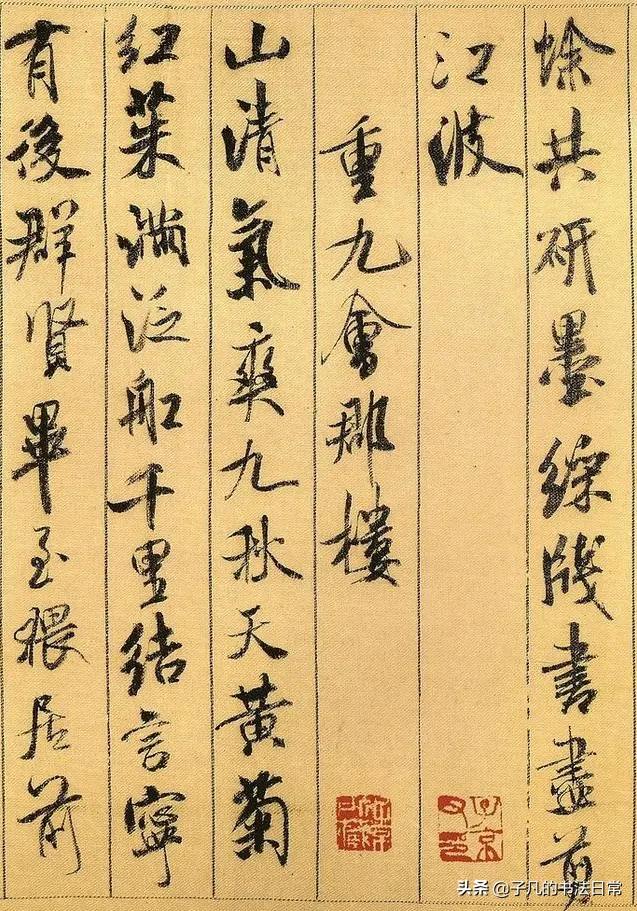 蜍共研墨綵牋書盡剪
江波
重九會郡樓
山清氣爽九秋天黃菊
紅茱滿泛船千里結言寧
有後群賢畢至猥居前
头条 @子凡的书法日常